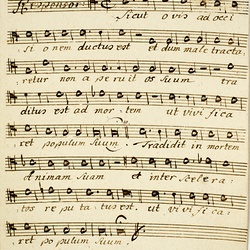 Responsor: Sicut ovis ad occi
si onem ductus est et dum male tracta
retur non a peruit os suum tra
ditus est ad mor tem ut vivi fica
ret populum suum Tradidit in mortem
animam suam et inter scelera
tos re pu ta tus est. ut vivi fica
ret po pulum suum